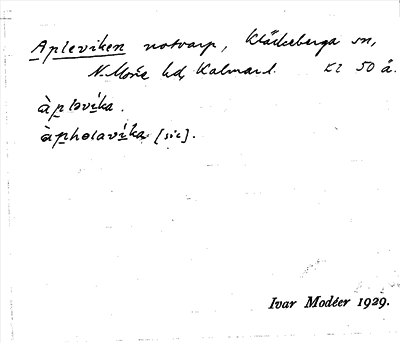 Apleviken notvarp, Kläckeberga sn,
N. Möre hd, Kalmar l. Kl 50 å.
àplevíka.
àpholavíka [sic].
Ivar Modéer 1929.